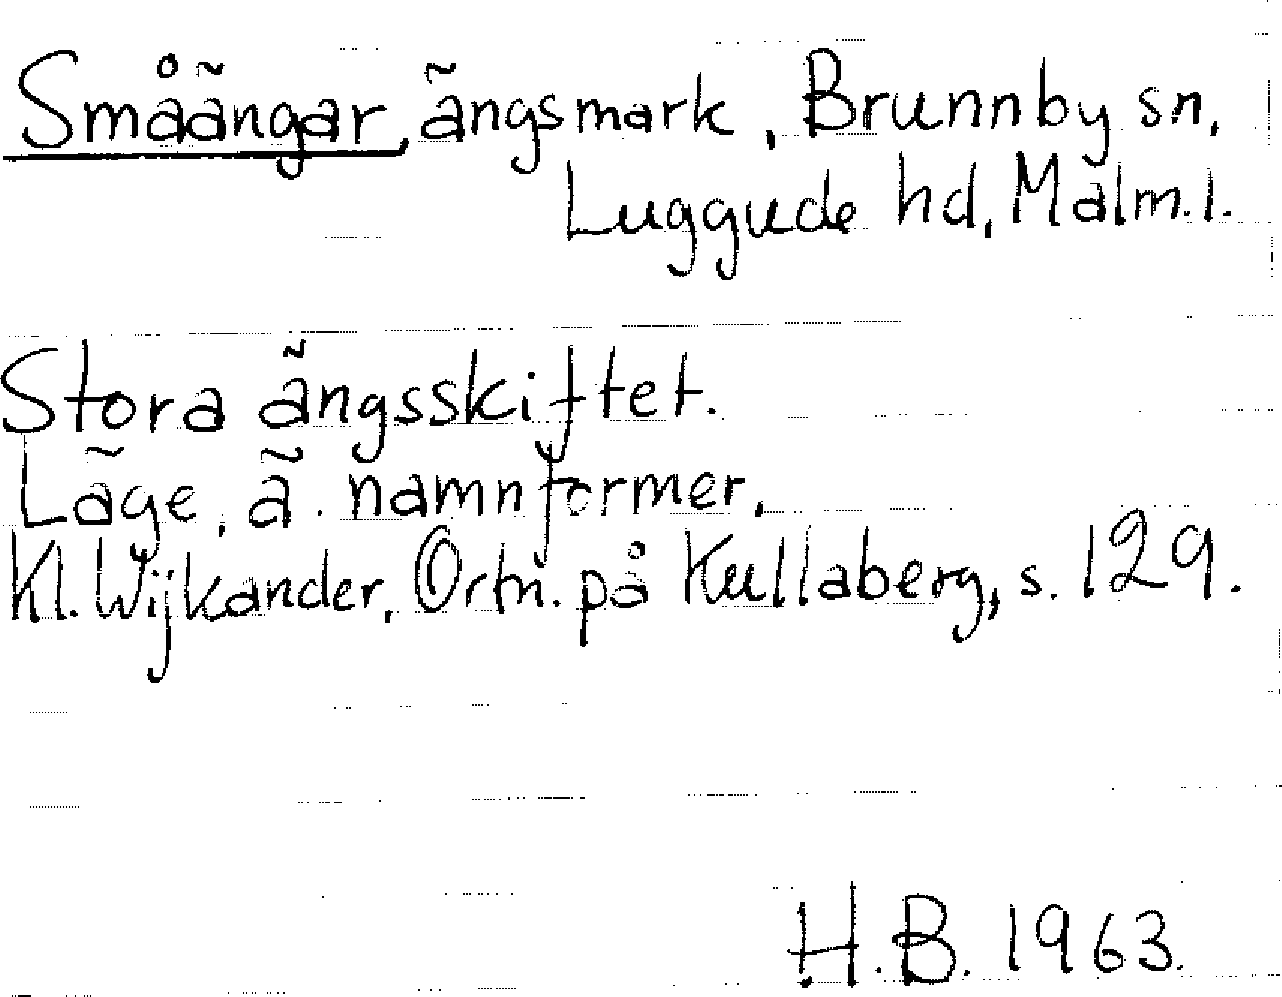 Småängar, ängsmark, Brunnby sn,
Luggude hd, Malm. l.
Stora ängsskiftet.
Läge, ä. namnformer,
Kl. Wijkander, Ortn. på Kullaberg, s. 129.
H.B. 1963.